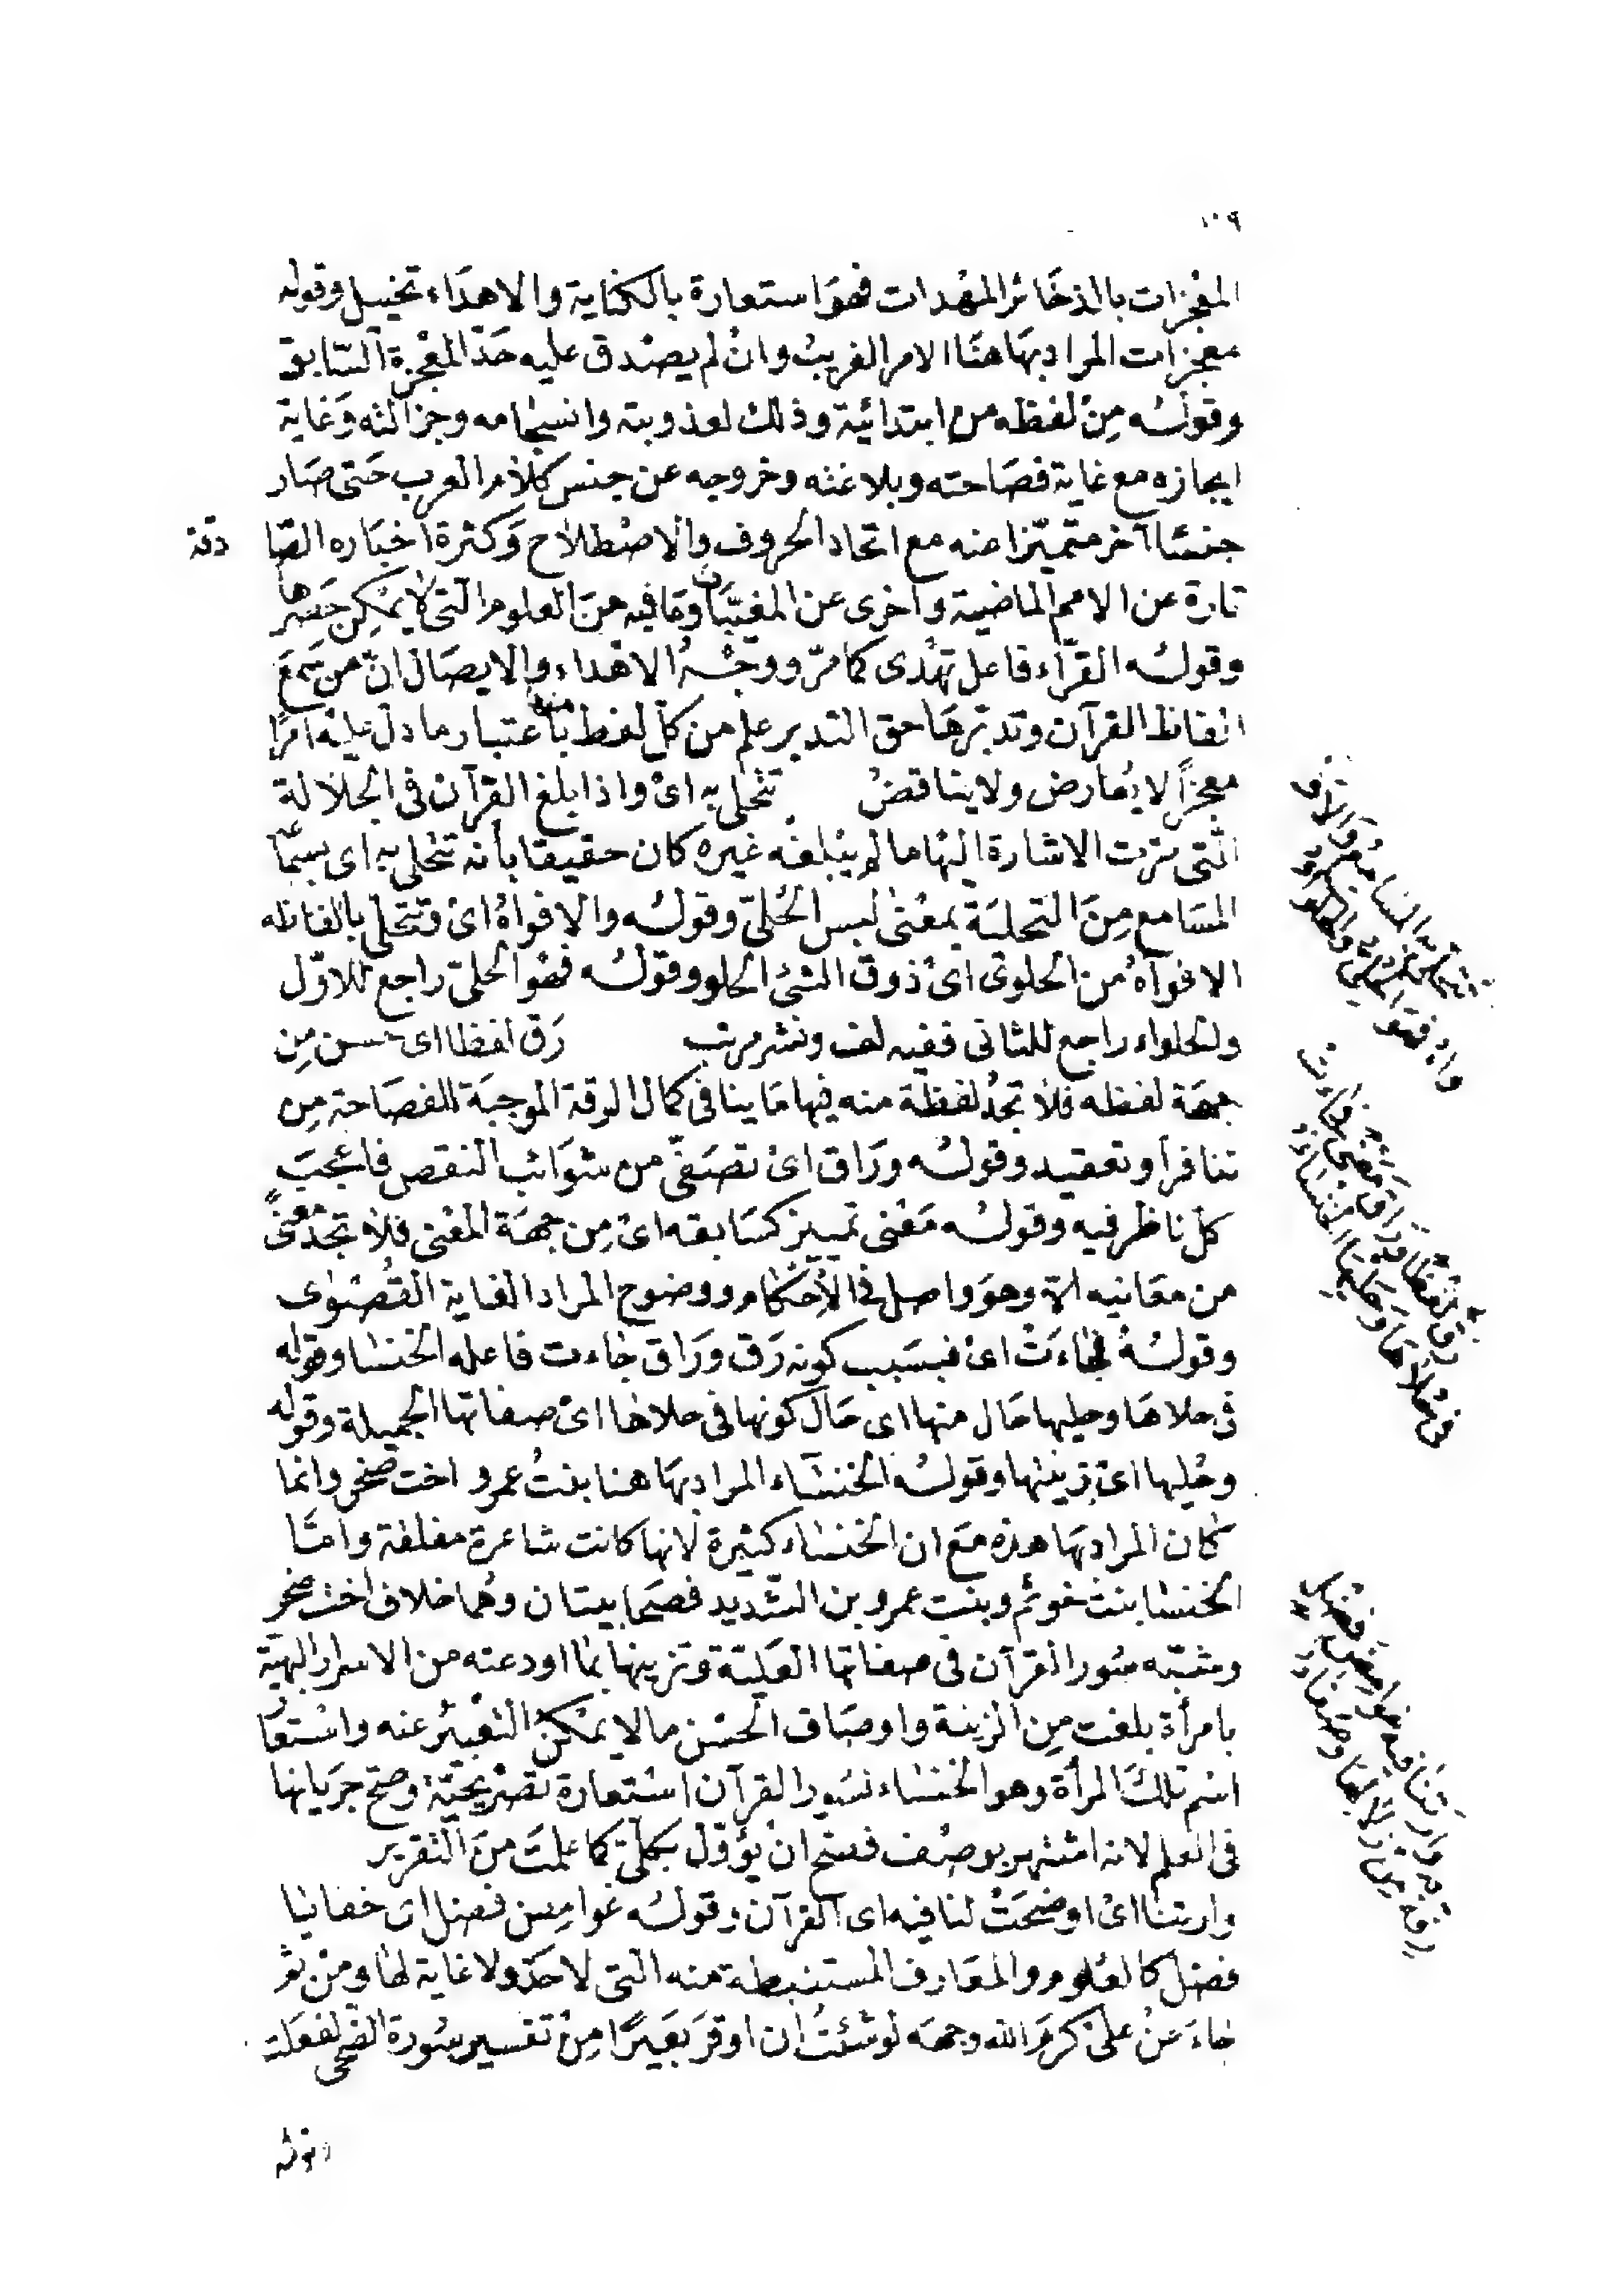 ١٠٩
المعجزات بالذخائر المهدات فهو استعارة بالكناية والاهداء تخييل وقوله
معجزات المراد بها هنا الامر الغريب وان لم يصدق عليه حد المعجزة السابق
وقوله من لفظه من ابتدائية وذلك لعذوبته وانسجامه وجزالته وغاية
ايجازه مع غاية فصاحته وبلاغته وخروجه عن جنس كلام العرب حتى صار
جنسا آخر متميّزا عنه مع اتحاد الحروف والاصطلاح وكثرة اخباره الصا دقة
تارة عن الامم الماضية واخرى عن المغيّبات وما فيه من العلوم التى لا يمكن حصرها
وقوله القرّاء فاعل تهدى كما مرّ ووجه الاهداء والايصال انّ من سمع
الفاظ القرآن وتدبّرها حق التدبر علم من كل لفظ منها باعتبار ما دل عليه امرًا
معجزًا لا يعارض ولا يناقض تتحلى به اى واذا بلغ القرآن فى الجلالة
التى مرّت الاشارة اليها ما لم يبلغه غيره كان حقيقا بأنه تتحلى به اى بسماعه
المسامع من التحلية بمعنى لبس الحُليّ وقوله والافواهُ اى وتتحلى بالفاظه
الافواهُ من الحلوى اى ذوق الشئ الحلو وقوله فهو الحلىّ راجع للاوّل
والحلواء راجع للثانى ففيه لف ونشر مرتب رَق لفظا اى حسن مِن
جهة لفظه فلا تجدُ لفظة منه فيها ما ينافى كمال الرقة الموجبة للفصاحة مِن
تنافر او تعقيد وقوله ورَاق اى تصفّى من شوائب النقص فاعجبَ
كل ناظر فيه وقوله مَعْنى تمييز كسابقه اى مِن جهة المعنى فلا تجد معنىً
من معانيه الا وهو واصل فى الاحكام ووضوح المراد الغاية القُصْوى
وقوله فجاءَتْ اى فبسَبب كونه رَق ورَاق جاءت فاعله الخنسا وقوله
فى حلاها وحليها حال منها اى حال كونها فى حلاها اى صفاتها الجميلة وقوله
وحُليها اى زينتها وقوله الخنسَاء المراد بها هنا بنتُ عمرو اخت صخر وانما
كان المراد بها هذه مع ان الخنساء كثيرة لانها كانت شاعرة مفلقة وامّا
الخنسا بنت وبنت عمرو بن الشديد فصحابيتان وهُما خلاف اخت صخر
وشبّه سُور القرآن فى صفاتها العَليّة وتزينها بما اودعته من الاسرار البهيّة
بامرأة بلغت مِن الزينة واوصاف الحسْن ما لا يمكنُ التعبيرُ عنه واستعا
اسم تلك المرأة وهو الخنساء لسُور القرآن استعارة تصريحيّة وصح جرَيانها
فى العلم لانه اشتهر بوصف فصح ان يؤوّل بكلىّ كما علمتَ منَ التقرير
وارتنا اى اوضحَتْ لنا فيه اى القرآن وقوله غوامض فضل اى خفايا
فضل كالعُلوم والمعارف المستنبطة منه التى لا حدّ ولا غاية لها ومنْ ثم
جاءَ عنْ على كرمَ الله وجهه لوشئتُ ان اوقرَ بَعيرًا مِنْ تفسير سُورة الضحى لفعلت
تتحلى به المسامع والافواه فهو الحلىّ والحلواء
رق لفظا وراق معنى فجاءت فى حلاها وحليها الخنساء
وارتنا فيه غوامض فضل رقة من زلالها وصفاء